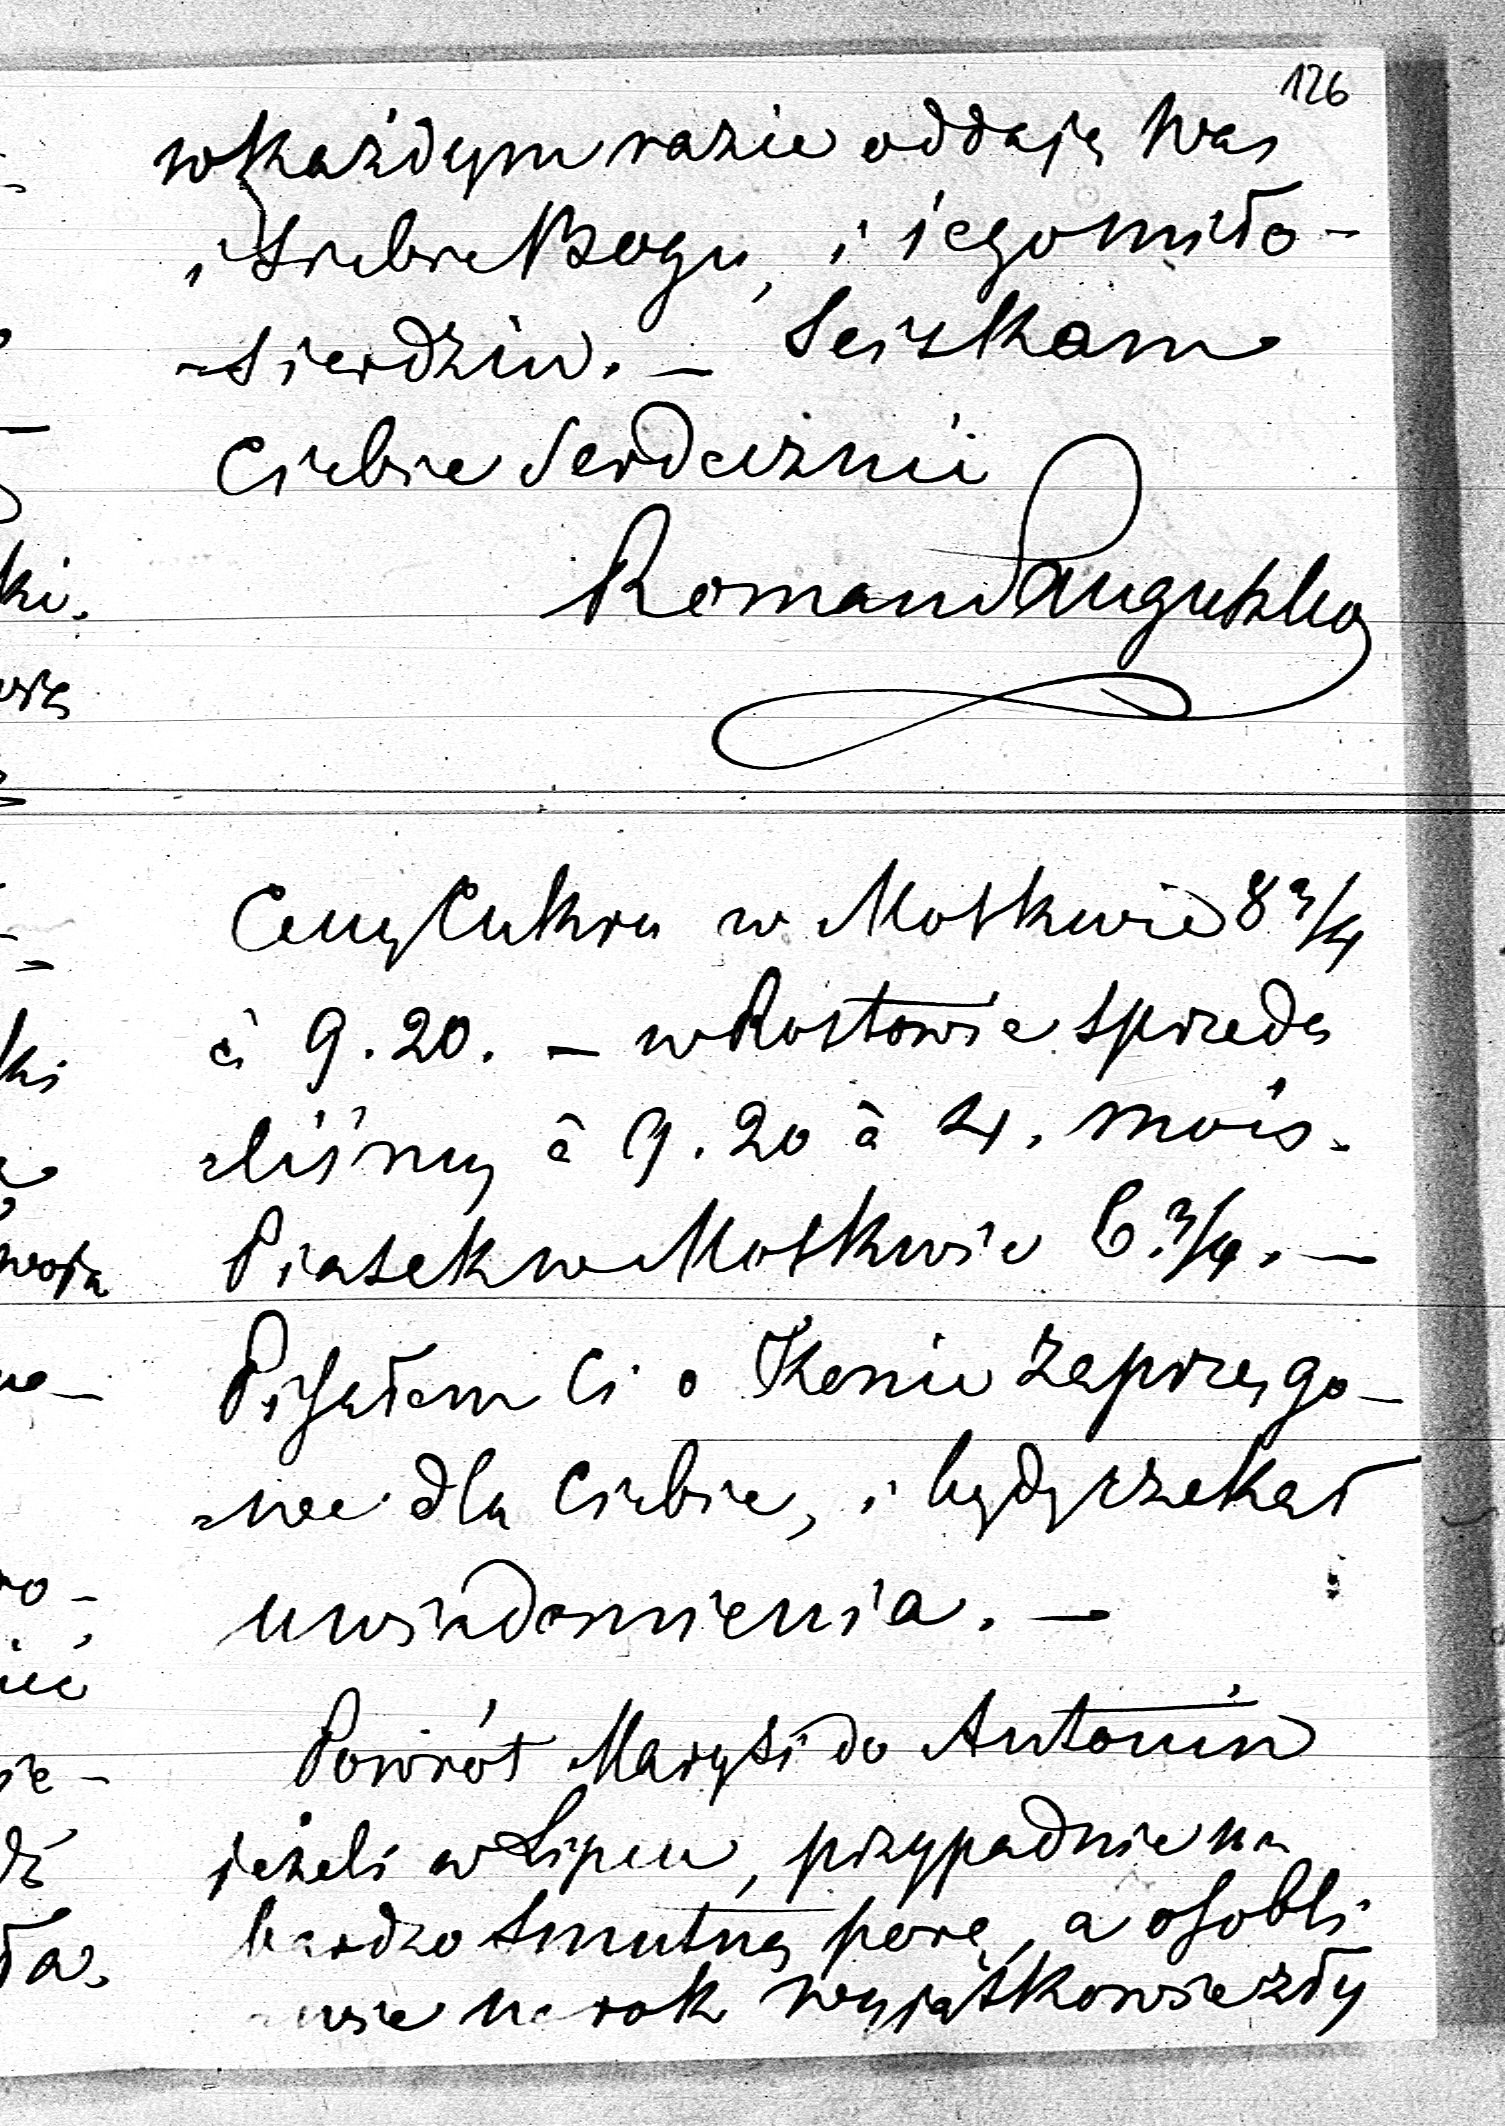 126
w każdym razie oddaję Was
i Siebie Bogu, i jego miło-
-sierdziu. - Sciskam
Ciebie Serdecznie
Roman Sanguszko
Ceny Cukru w Moskwie 8 3/4
à 9.20. - w Rostowie sprzeda
-liśmy à 9.20 à 4. mois.
Piasek w Moskwie 6. 3/4. -
Pisałem Ci o Konie zaprzęgo-
-we dla Ciebie, i będę czekał
uwiadomienia. -
Powrót Marysi do Antonin
jeżeli w Lipcu, przypadnie na
bardzo smutną porę, a osobli
-wie na rok wyjątkowie zły